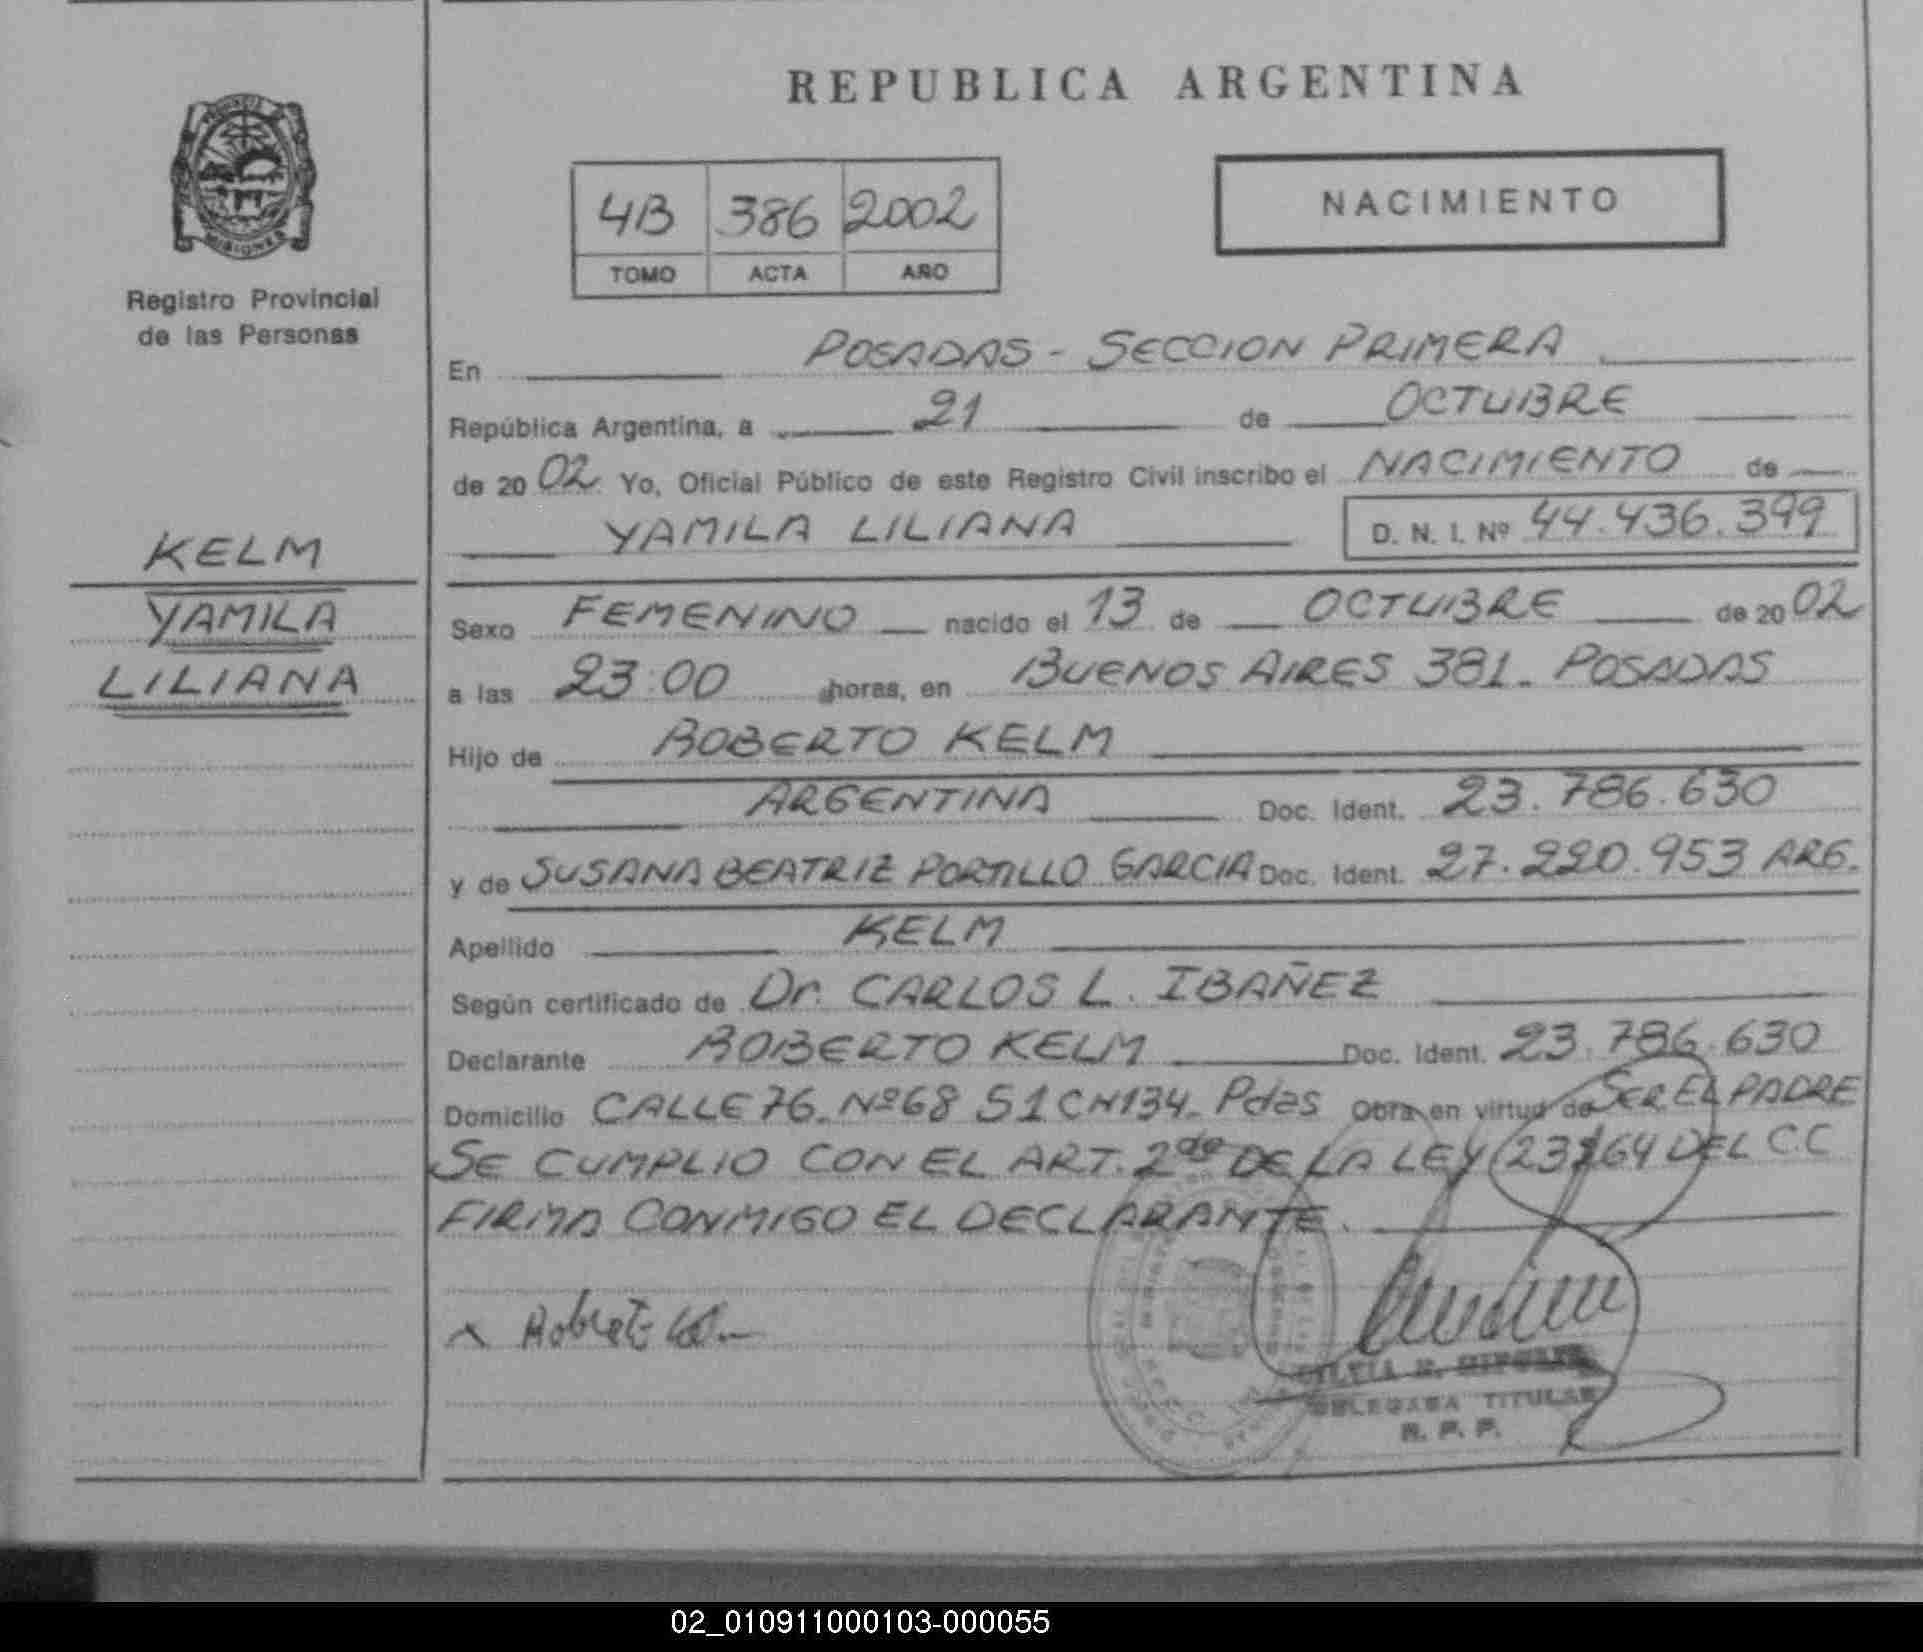 REPUBLICA ARGENTINA
4B 386 2002
TOMO ACTA AÑO
NACIMIENTO
MISIONES
Registro Provincial
de las Personas
KELM
YAMILA
LILIANA
En POSADAS - SECCION PRIMERA
República Argentina, a 21 de OCTUBRE
de 2002. Yo, Oficial Público de este Registro Civil inscribo el NACIMIENTO de
YAMILA LILIANA D. N. I. Nº 44.436.399
Sexo FEMENINO nacido el 13 de OCTUBRE de 2002
a las 23:00 horas, en BUENOS AIRES 381. POSADAS
Hijo de ROBERTO KELM
ARGENTINA Doc. Ident. 23.786.630
y de SUSANA BEATRIZ PORTILLO GARCIA Doc. Ident. 27.220.953 ARG.
Apellido KELM
Según certificado de Dr. CARLOS L. IBAÑEZ
Declarante ROBERTO KELM Doc. Ident. 23.786.630
Domicilio CALLE 76. Nº68 S1 CH134. Pdas Obra en virtud de SER EL PADRE
SE CUMPLIO CON EL ART. 2do DE LA LEY 23264 DEL C.C
FIRMA CONMIGO EL DECLARANTE.
x Roberto Kelm
DELEGADA TITULAR
R. P. P.
02_010911000103-000055